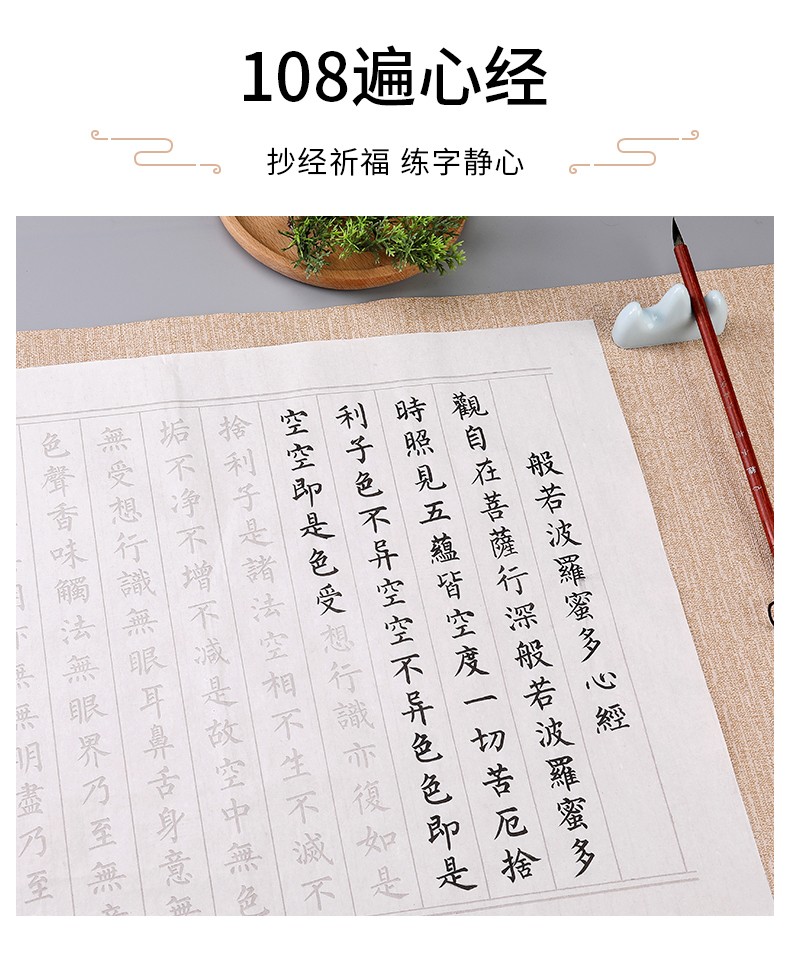 108遍心经
抄经祈福 练字静心
般若波羅蜜多心經
觀自在菩薩行深般若波羅蜜多
時照見五蘊皆空度一切苦厄捨
利子色不异空空不异色色即是
空空即是色受想行識亦復如是
捨利子是諸法空相不生不滅不
垢不净不增不減是故空中無色
無受想行識無眼耳鼻舌身意無
色聲香味觸法無眼界乃至無
無無明盡乃至